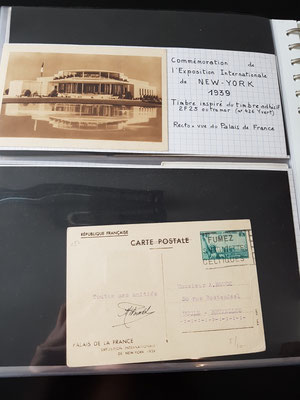 Commémoration de
l'Exposition Internationale
de NEW-YORK
1939
Timbre inspiré du timbre mobile
2F25 outremer (n° 426 Yvert)
Recto = vue du Palais de France
RÉPUBLIQUE FRANÇAISE
CARTE POSTALE
FUMEZ
CELTIQUES
Toutes mes amitiés
Monsieur A.
PALAIS DE LA FRANCE
EXPOSITION INTERNATIONALE
DE NEW-YORK 1939